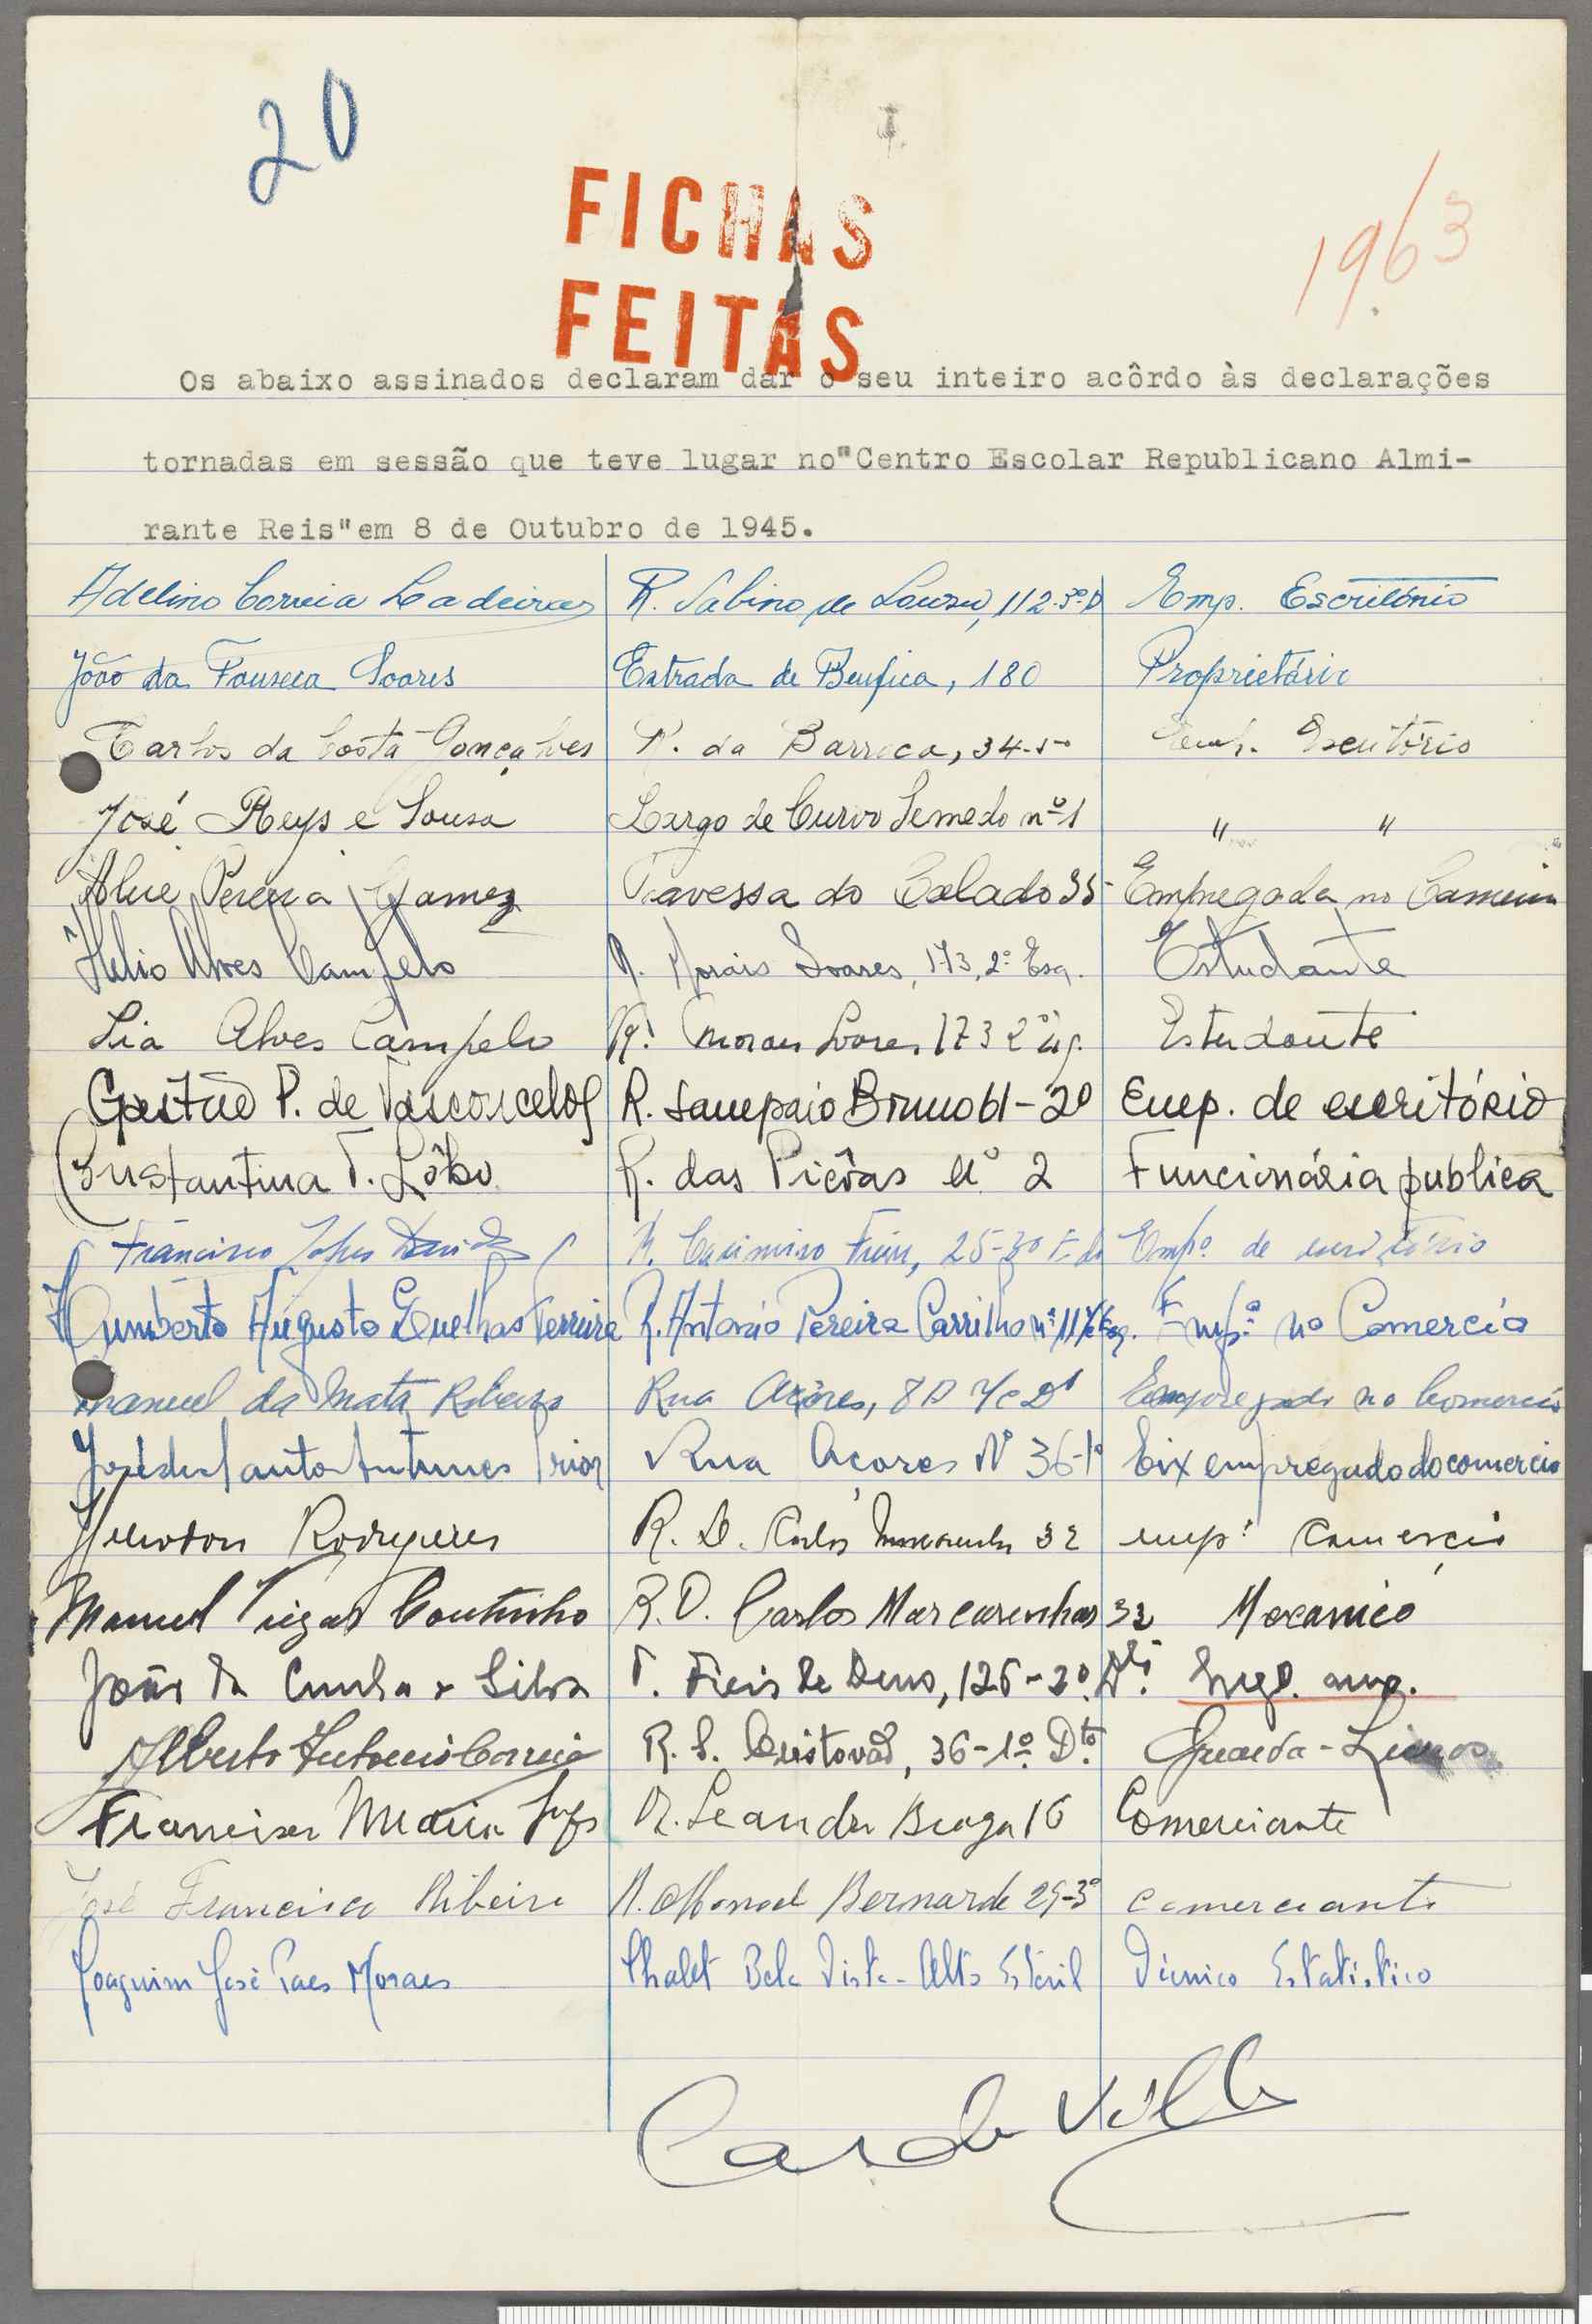 20
FICHAS
FEITAS
1963
Os abaixo assinados declaram dar o seu inteiro acôrdo às declarações
tornadas em sessão que teve lugar no"Centro Escolar Republicano Almi-
rante Reis"em 8 de Outubro de 1945.
Adelino Correia Ladeiras R. Sabino de Sousa, 112-3º-D Emp. Escritório
João da Fonseca Soares Estrada de Benfica, 180 Proprietário
Carlos da Costa Gonçalves R. da Barroca, 34-5º Escritório
José Reys e Sousa Largo de Curvo Semedo nº 1 " "
Alice Pereira Gomez Travessa do Calado 35 Empregada no
Hélio Alves Campelo R. Morais Soares, 173, 2º Esq. Estudante
Lia Alves Campelo R. Morais Soares 173 2º Estudante
Gastão P. de Vasconcelos R. Sampaio Bruno 61-2º Emp. de escritório
Constantina T. Lôbo R. das Picôas nº 2 Funcionária publica
Francisco Lopes R. Casimiro Freire, 25-3º Empº de escritório
Humberto Augusto Guelhas Ferreira R. António Pereira Carrilho nº 11 Empº no Comercio
Manuel da Mata Ribeiro Rua Açôres, 8D r/c Dt Empregado no Comercio
José dos Santos Antunes Prior Rua Açores Nº 36-1º Eix empregado do comercio
Newton Rodrigues R. D. Carlos Mascarenhas 32 empº comercio
Manuel Viegas Coutinho R. D. Carlos Marcarenhas 32 Mecanico
João da Cunha e Silva T. Fieis de Deus, 126-2º. Dtº
Alberto Antonio Correia R. S. Cristovão, 36-1º. Dtº. Guarda-Livros
Francisco Maria R. Leandro Braga 16 Comerciante
José Francisco Ribeiro R. Manoel Bernarde 29-3º comerciante
Joaquim José Paes Moraes Chalet Bela Vista-Alto Estoril Técnico Estatistico